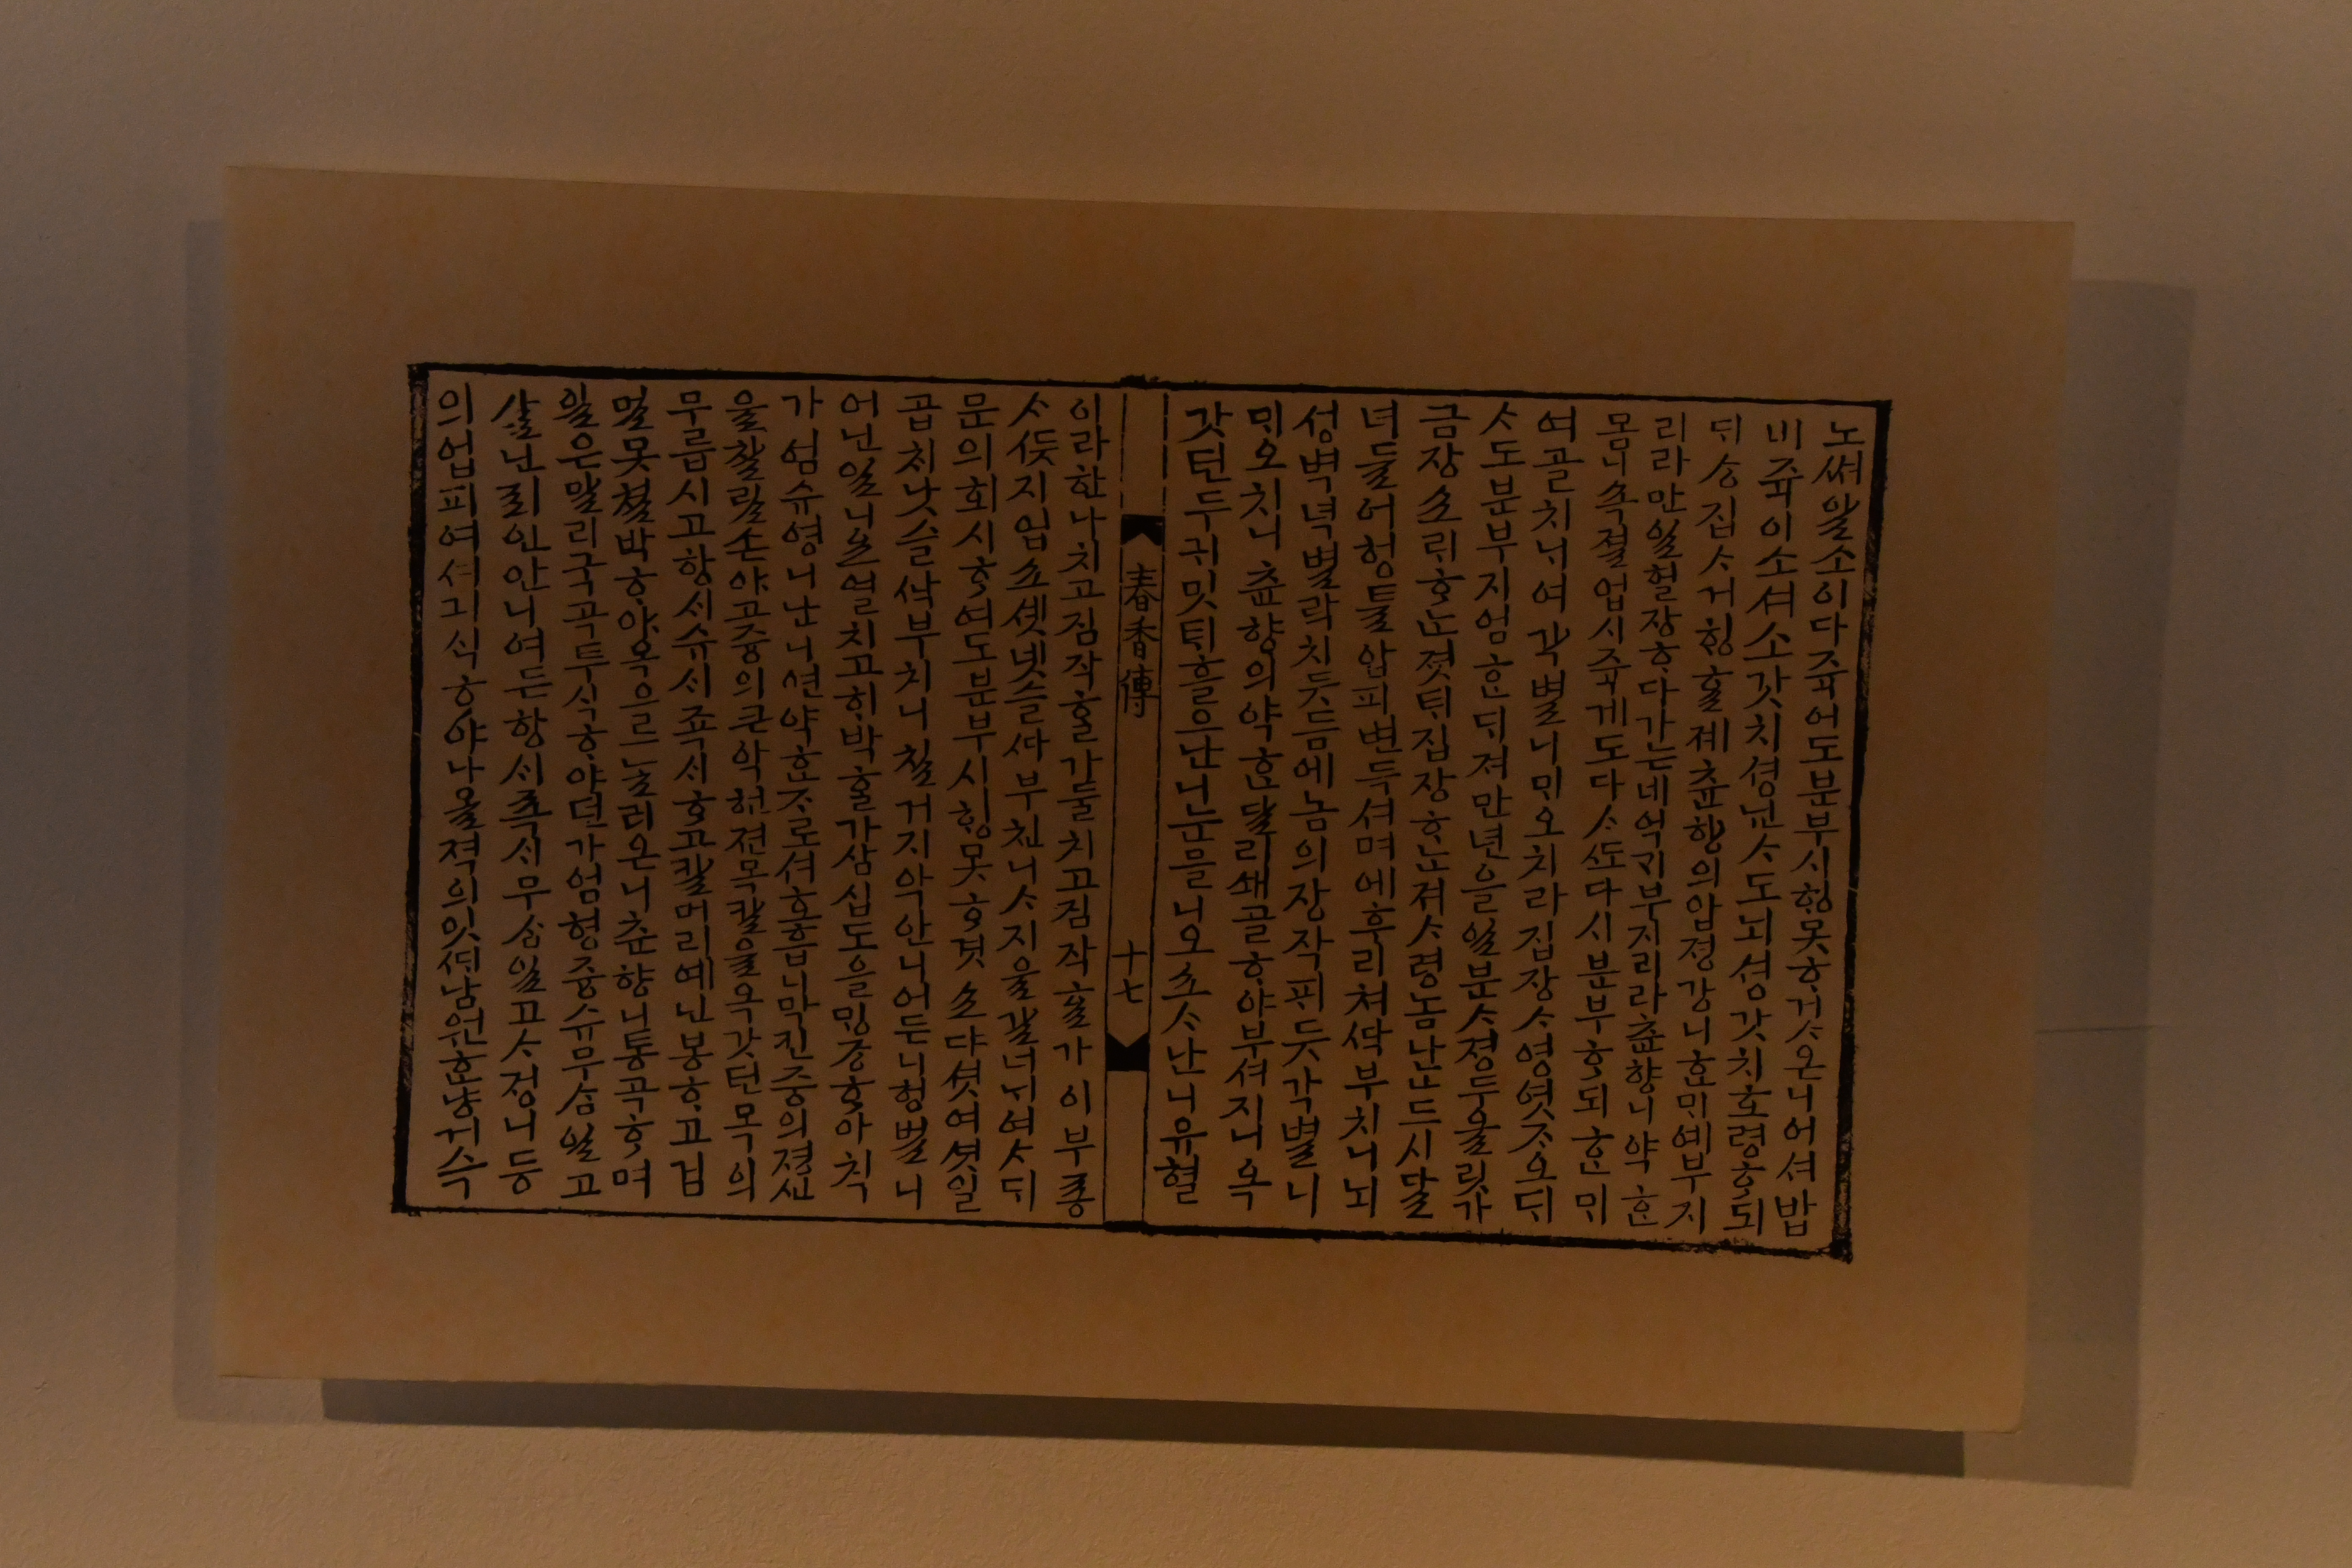 노쎠 알소이다 쥭어도 분부 시힝 못 ᄒᆞ거ᄉᆞ온니 어셔 밥
비 쥭이소셔 소갓치 셩닌 ᄉᆞ도 뇌셩갓치 호령ᄒᆞ되
집ᄉᆞ 거힝ᄒᆞᆯ 졔 츈향의 압졍강니 ᄒᆞᆫᄆᆡ예 부지
리라 만일 헐장ᄒᆞ다가는 네 억ᄀᆡ 부지리라 츈향니 약ᄒᆞᆫ
몸니 쇽졀업시 쥭게도다 ᄉᆞᄯᅩ 다시 분부ᄒᆞ되 ᄒᆞᆫᄆᆡ
여 골치니 여 각별니 ᄆᆡ오 치라 집장ᄉᆞ영 엿ᄌᆞ오ᄃᆡ
ᄉᆞ도 분부 지엄ᄒᆞᆫᄃᆡ 져만 년을 일분 ᄉᆞ졍 두올릿가
금장소ᄅᆡ ᄒᆞᄂᆞᆫ 졋ᄐᆡ 집장ᄒᆞᄂᆞᆫ 져 ᄉᆞ령 놈 난드시 달
녀들어 형틀 압피 변듯셔며 에후리쳐 ᄯᅡᆨ 부치니 뇌
셩벽녁 별락치듯 듬에 놈의 장작 ᄑᆡ듯 각별니
ᄆᆡ오 치니 츈향의 약ᄒᆞᆫ 달리 쇄골ᄒᆞ야 부셔지니 옥
갓턴 두 귀밋ᄐᆡ 흘으난니 눈믈니오 소ᄉᆞ난니 유혈
이라 ᄒᆞᆫ나 치고 짐작ᄒᆞᆯ가 둘 치고 짐작ᄒᆞᆯ가 이부종
ᄉᆞ ᄯᅳᆺ지 업소 셋 넷 슬 ᄯᅡ 부친니 ᄉᆞ지을 갈너 ᄂᆡ여 ᄉᆞᄃᆡ
문의 회시ᄒᆞ여도 분부 시힝 못 ᄒᆞ것소 다셧 여셧 일
곱 치 낫슬 ᄯᅡᆨ 부치니 칠거지악 안니어든니 형벌니
어닌 일니 여열 치고 ᄒᆡ박ᄒᆞᆯ가 삼십도을 ᄆᆡᆼ쟝ᄒᆞ아 칙
가 엄슈영니 난니 연약ᄒᆞᆫ ᄌᆞ로셔 호흡니 막킨 즁의 졍신
을 찰릴손야 고즁의 큰악 ᄒᆞᆫ 젼목칼을 옥갓턴 목의
무릅시고 항시슈시 죡시ᄒᆞ고 칼머리예 닌봉ᄒᆞ고 겁
멀 못 쳘박ᄒᆞ야 옥으로 ᄂᆞ려온니 츈향니 통곡ᄒᆞ며
일은 말리 국곡투식ᄒᆞ얏던가 엄형즁슈 무삼 일고
살닌죄인 안니여든 항시죡시 무삼 일고 ᄉᆞ졍니 등
의 업피여 셔 긔식ᄒᆞ야 나올 젹의 잇ᄯᆡ 남원 한량 거슉
春香傳
十七